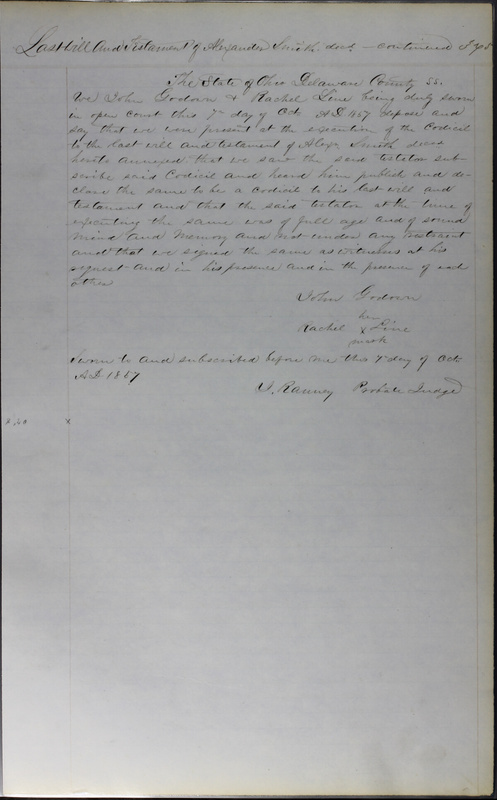 Last Will And Testament of Alexander Smith decd - continued
The State of Ohio Delaware County SS.
We John Godown & Rachel Line being duly sworn
in open Court this 7th day of Octr AD 1857 depose and
say that we were present at the execution of the Codicil
to the last will and testament of Alexr Smith decd
hereto annexed that we saw the said testator sub-
scribe said Codicil and heard him publish and de-
clare the same to be a Codicil to his last will and
testament and that the said testator at the time of
executing the same was of full age and of sound
mind and memory and not under any restraint
and that we signed the same as witnesses at his
request and in his presence and in the presence of each
other
John Godown
her
Rachel x Line
mark
Sworn to and subscribed before me this 7th day of Octr
AD 1857
T. Ranney Probate Judge
x